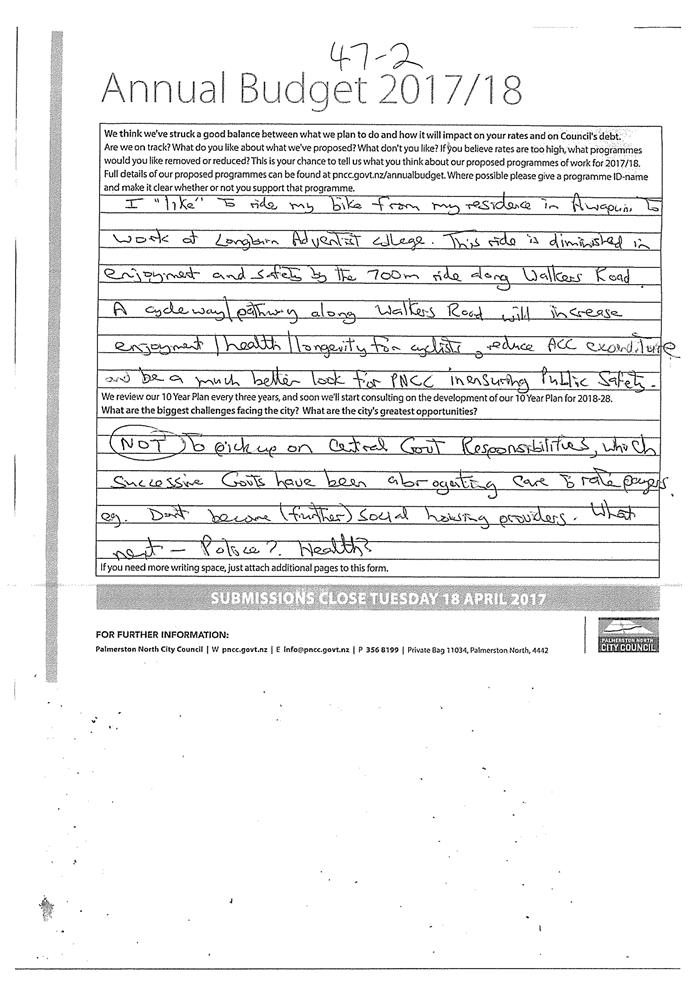 47-2
Annual Budget 2017/18
We think we've struck a good balance between what we plan to do and how it will impact on your rates and on Council's debt.
Are we on track? What do you like about what we've proposed? What don't you like? If you believe rates are too high, what programmes
would you like removed or reduced? This is your chance to tell us what you think about our proposed programmes of work for 2017/18.
Full details of our proposed programmes can be found at pncc.govt.nz/annualbudget. Where possible please give a programme ID-name
and make it clear whether or not you support that programme.
I "like" to ride my bike from my residence in Awapuni to
work at Longburn Adventist College. This ride is diminished in
enjoyment and safety by the 700m ride along Walkers Road.
A cycleway/pathway along Walkers Road will increase
enjoyment/health/longevity for cyclists, reduce ACC expenditure
and be a much better look for PNCC in ensuring Public Safety.
We review our 10 Year Plan every three years, and soon we'll start consulting on the development of our 10 Year Plan for 2018-28.
What are the biggest challenges facing the city? What are the city's greatest opportunities?
NOT to pick up on Central Govt Responsibilities, which
Successive Govts have been abrogating care to rate payers.
eg. Dont become (further) social housing providers. What
next - Police? Health?
If you need more writing space, just attach additional pages to this form.
SUBMISSIONS CLOSE TUESDAY 18 APRIL 2017
FOR FURTHER INFORMATION:
Palmerston North City Council | W pncc.govt.nz | E info@pncc.govt.nz | P 356 8199 | Private Bag 11034, Palmerston North, 4442
PALMERSTON NORTH
CITY COUNCIL